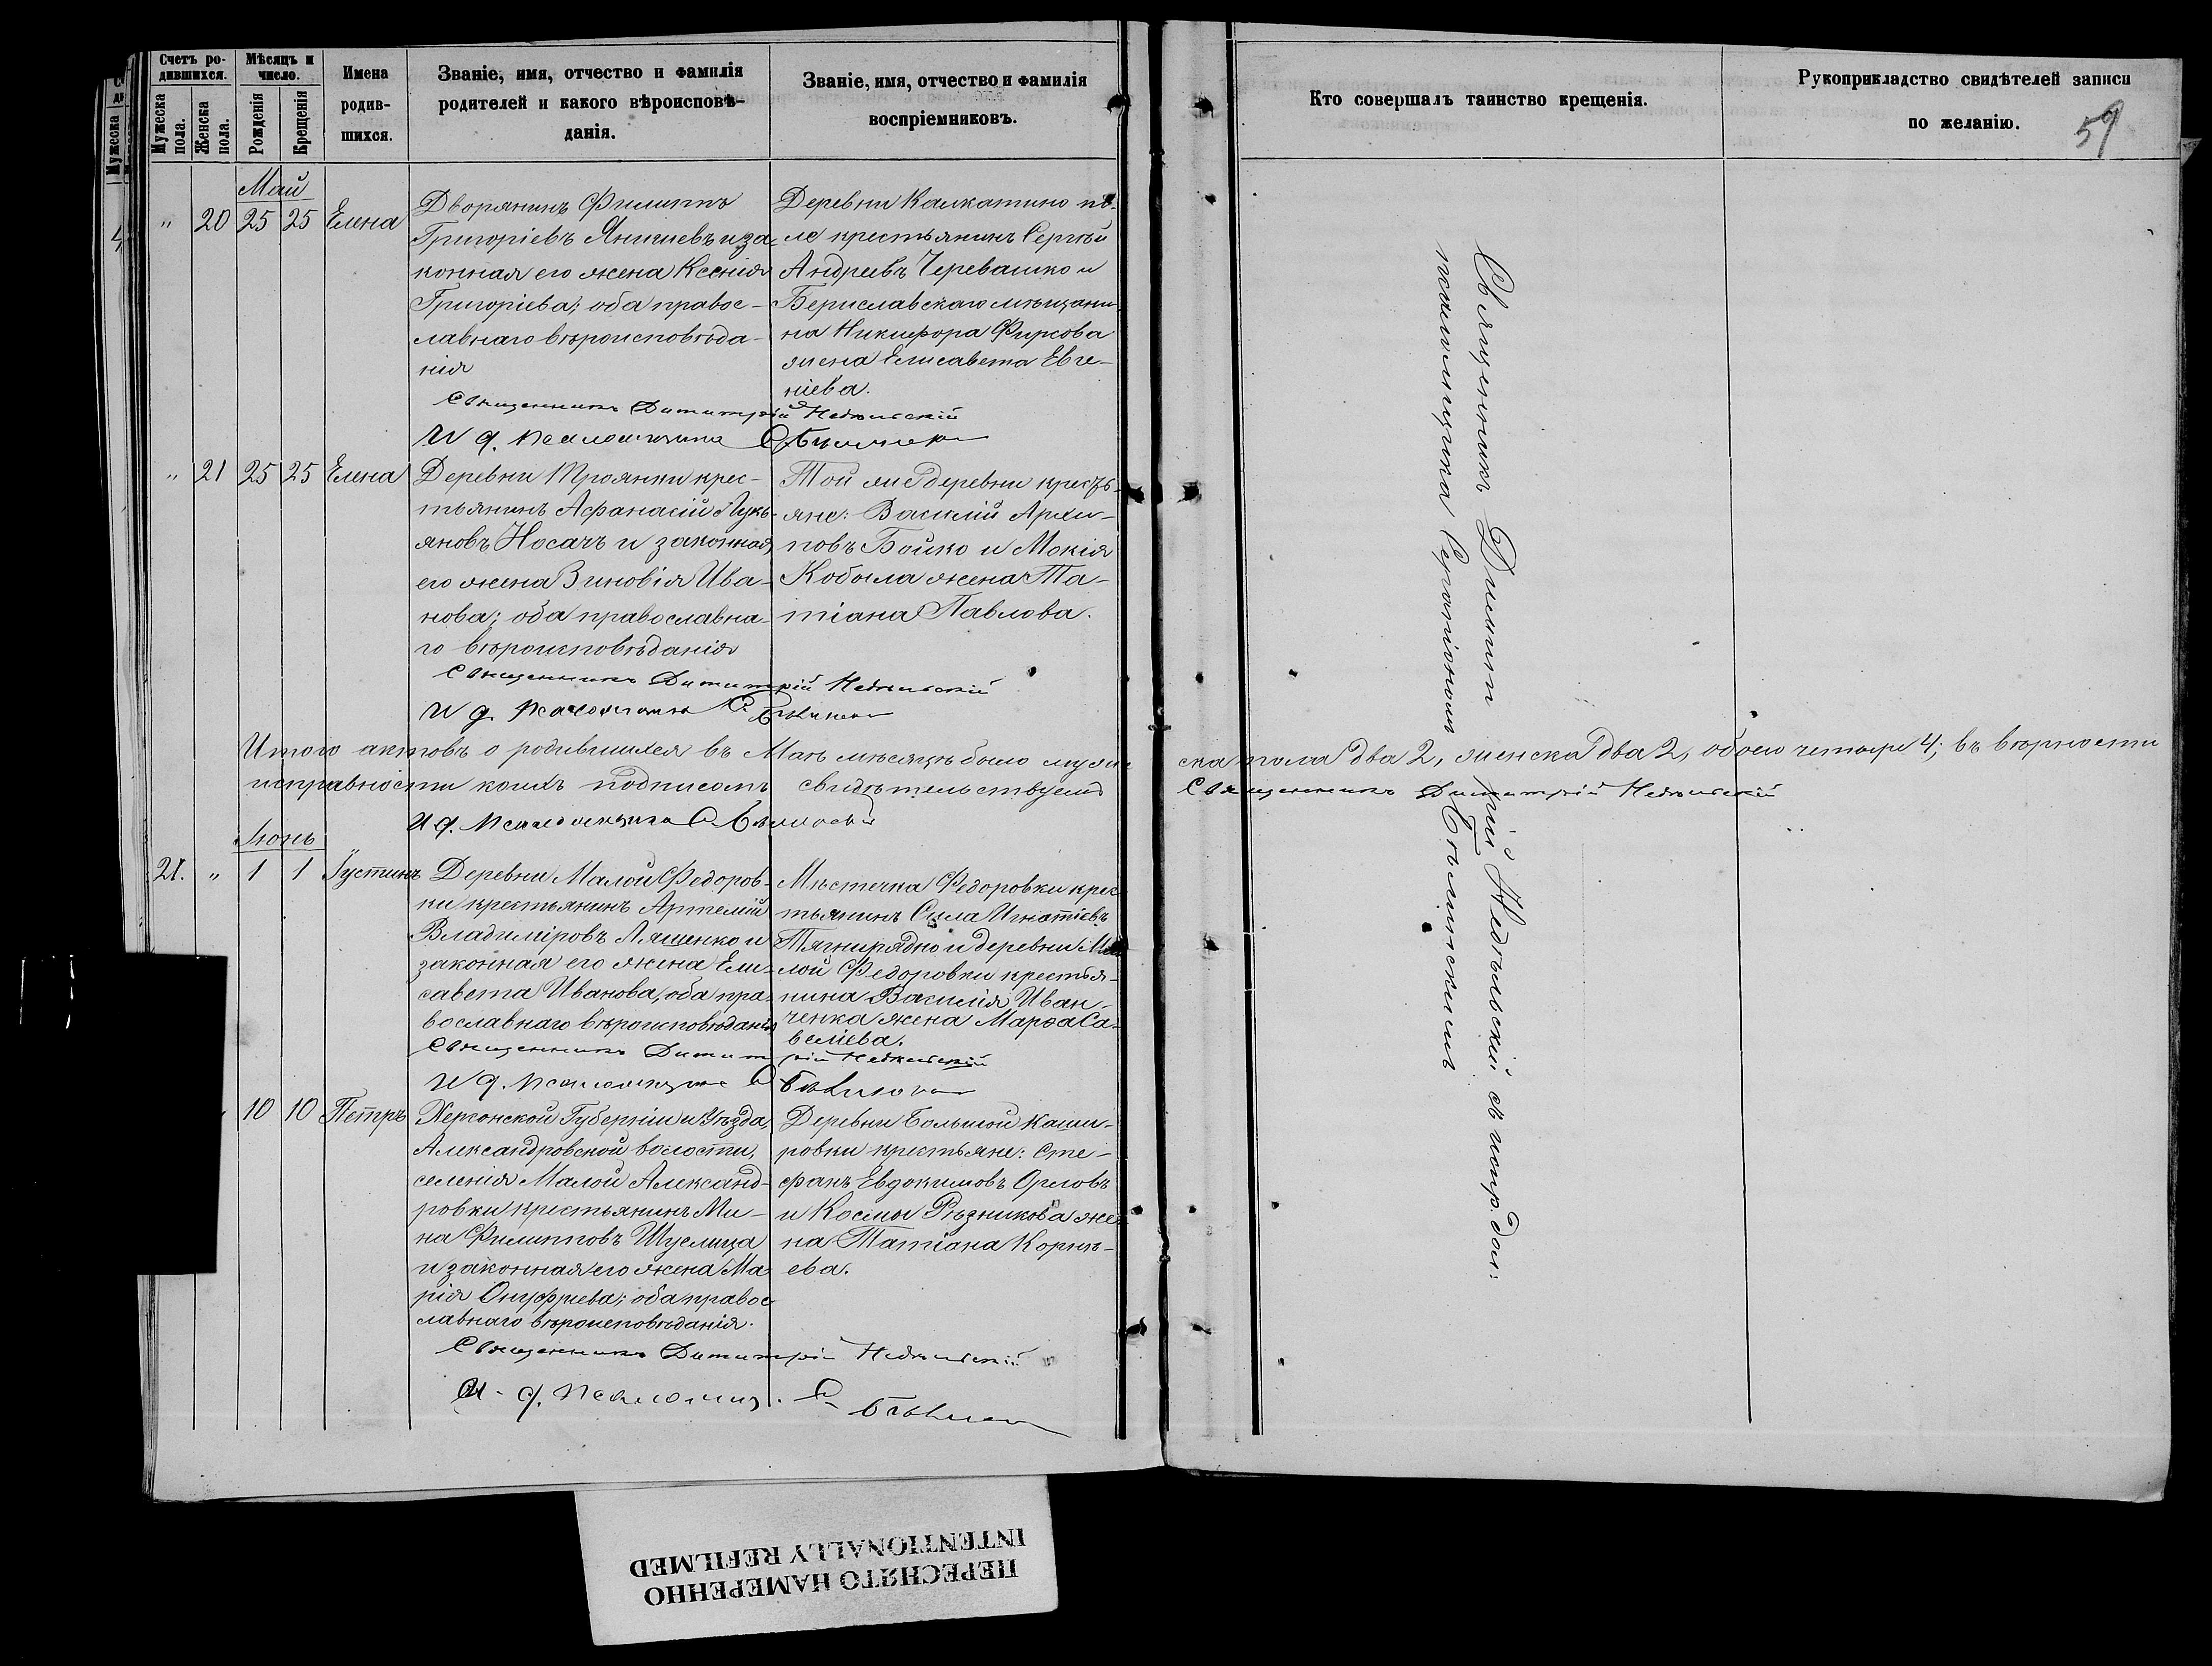 Счетъ ро-
дившихся.
Мужеска пола.
Женска пола.
Мѣсяцъ и
число.
Рожденія
Крещенія
Имена
родив-
шихся.
Званіе, имя, отчество и фамилія
родителей и какого вѣроисповѣ-
данія.
Званіе, имя, отчество и фамилія
воспріемниковъ.
Кто совершалъ таинство крещенія.
Рукоприкладство свидѣтелей записи
по желанію.
59
Май
" 20 25 25 Елена
Дворянинъ Филиппъ
Григоріевъ и за-
конная его жена Ксенія
Григоріева; оба правос-
лавнаго вѣроисповѣда-
нія
Деревни
крестьянинъ Сергѣй
Андреевъ Черевашко и
Бериславскаго мѣщани-
на Никифора Фирсова
жена Елисавета Евге-
ніева.
Священникъ Димитрій Недѣльскій
И д. псаломщика С.
" 21 25 25 Елена
Деревни Троянки крес-
тьянинъ Афанасій Лукь-
яновъ Носачъ и законная
его жена Зиновія Ива-
нова; оба православна-
го вѣроисповѣданія
Той же деревни кресть-
яне: Василій Архи-
повъ Бойко и Мокія
Кобыла жена Та-
тіана Павлова.
Священникъ Димитрій Недѣльскій
И д. псаломщика С.
Итого актовъ о родившихся въ Маѣ мѣсяцѣ было муже-
ска пола два 2, женска два 2, обоего четыре 4; въ вѣрности
исправности коихъ подписомъ свидѣтельствуемъ
Священникъ Димитрій Недѣльскій
И д. псаломщика С.
Іюнь
21. " 1 1 Іустинъ
Деревни Малой Федоров-
ки крестьянинъ Артемій
Владиміровъ Лященко и
законная его жена Ели-
савета Иванова, оба пра-
вославнаго вѣроисповѣданія
Мѣстечка Федоровки крес-
тьянинъ Сила Игнатіевъ
Тягнирядно и деревни Ма-
лой Федоровки крестья-
нина Василія Иван-
ченка жена Марѳа Са-
веліева.
Священникъ Димитрій Недѣльскій
И д. псаломщика С.
10 10 Петръ
Херсонской Губерніи и Уѣзда,
Александровской волости,
селенія Малой Александ-
ровки крестьянинъ Ми-
на Филипповъ Шуслица
и законная его жена Ма-
рія Онуфріева; оба правос-
лавнаго вѣроисповѣданія.
Деревни Большой Каши-
ровки крестьяне: Сте-
фанъ Евдокимовъ Орловъ
и Космы Рѣзникова же-
на Татіана Корнѣ-
ева.
Священникъ Димитрій Недѣльскій
И. д. псаломщ. С.
Священникъ Димитрій Недѣльскій съ испр. дол:
псаломщика Серапіономъ
ПЕРЕСНЯТО НАМЕРЕННО
INTENTIONALLY REFILMED